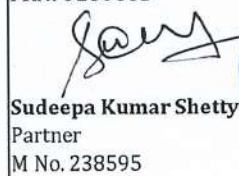 Sudeepa Kumar Shetty
Partner
M No. 238595